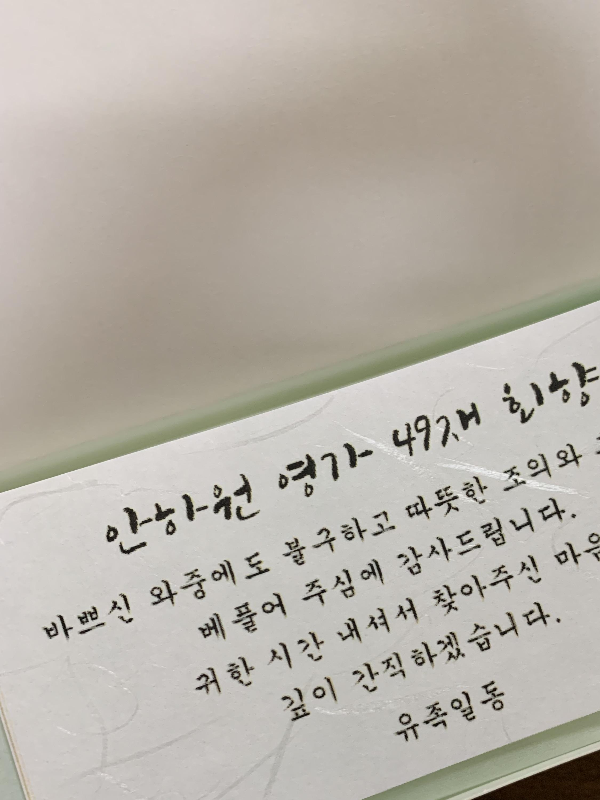 안하원 영가 49재 회향
바쁘신 와중에도 불구하고 따뜻한 조의와
베풀어 주심에 감사드립니다.
귀한 시간 내셔서 찾아주신 마음
깊이 간직하겠습니다.
유족일동